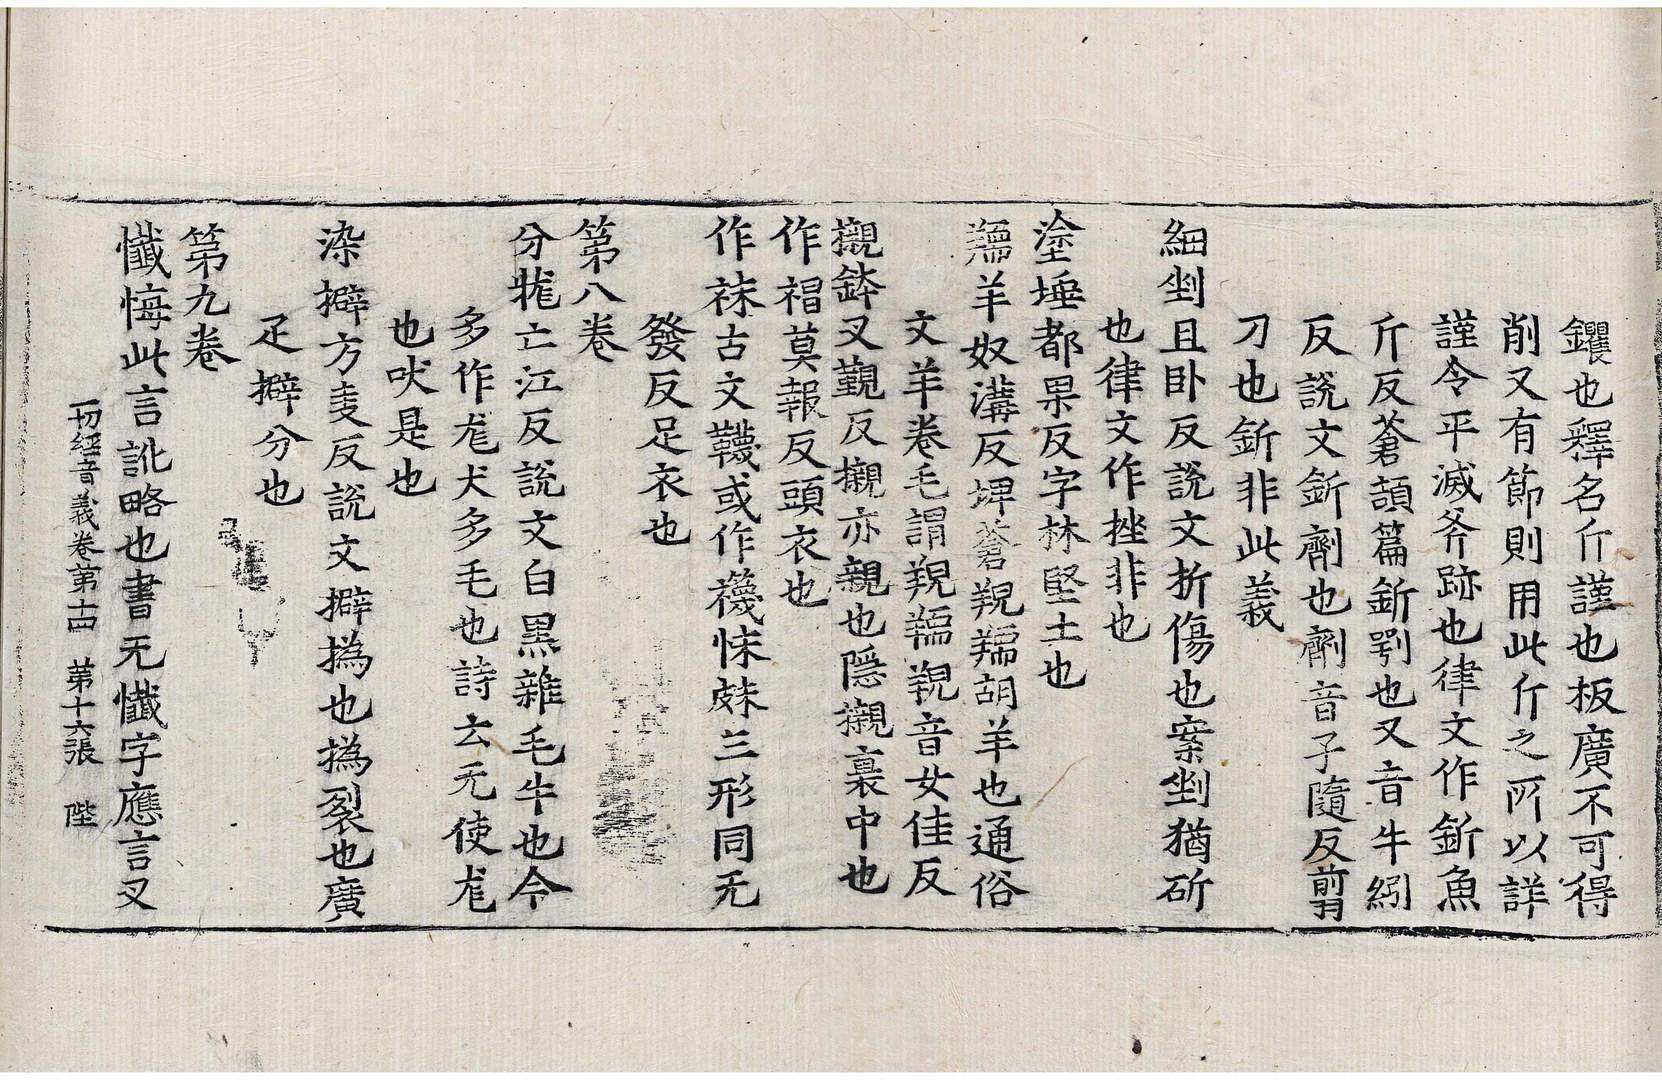 钁也釋名斤謹也板廣不可得
削又有節則用此斤之所以詳
謹令平滅斧跡也律文作釿魚
斤反蒼頡篇釿剠也又音牛紉
反說文釿劑也劑音子隨反剪
刀也釿非此義
細剉且卧反說文折傷也案剉猶斫
也律文作挫非也
塗埵都果反字林堅土也
羺羊奴溝反埤蒼䍲羺胡羊也通俗
文羊卷毛謂䍲羺䍲音女佳反
襯鉢又覲反襯亦親也隱襯裏中也
作帽莫報反頭衣也
作袜古文韈或作襪㡊䩋三形同无
發反足衣也
第八卷
分牻亡江反說文白黑雜毛牛也今
多作尨犬多毛也詩云无使尨
也吠是也
染擗方麦反說文擗撝也撝裂也廣
疋擗分也
第九卷
懺悔此言訛略也書无懺字應言叉
一切經音義卷第十四 第十六張 陛